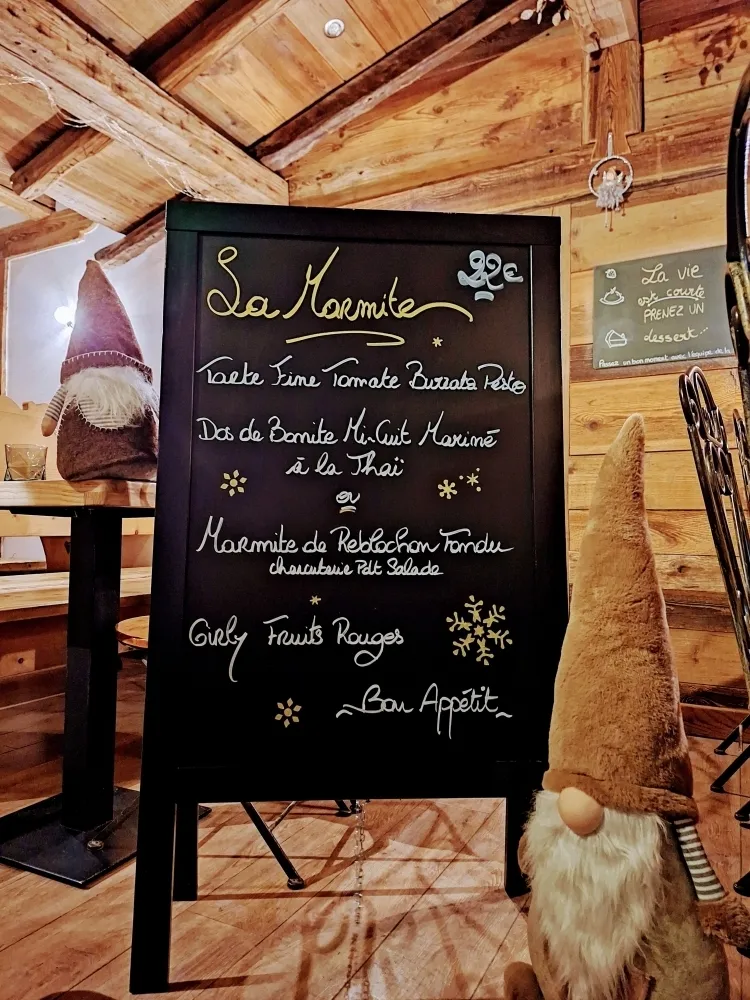 La Marmite
22€
Tarte Fine Tomate Burrata Pesto
Dos de Bonite Mi-Cuit Mariné
à la Thaï
ou
Marmite de Reblochon Fondu
charcuterie Pdt Salade
Girly Fruits Rouges
Bon Appétit
La vie
est courte
PRENEZ UN
dessert...
Passez un bon moment avec l'équipe de